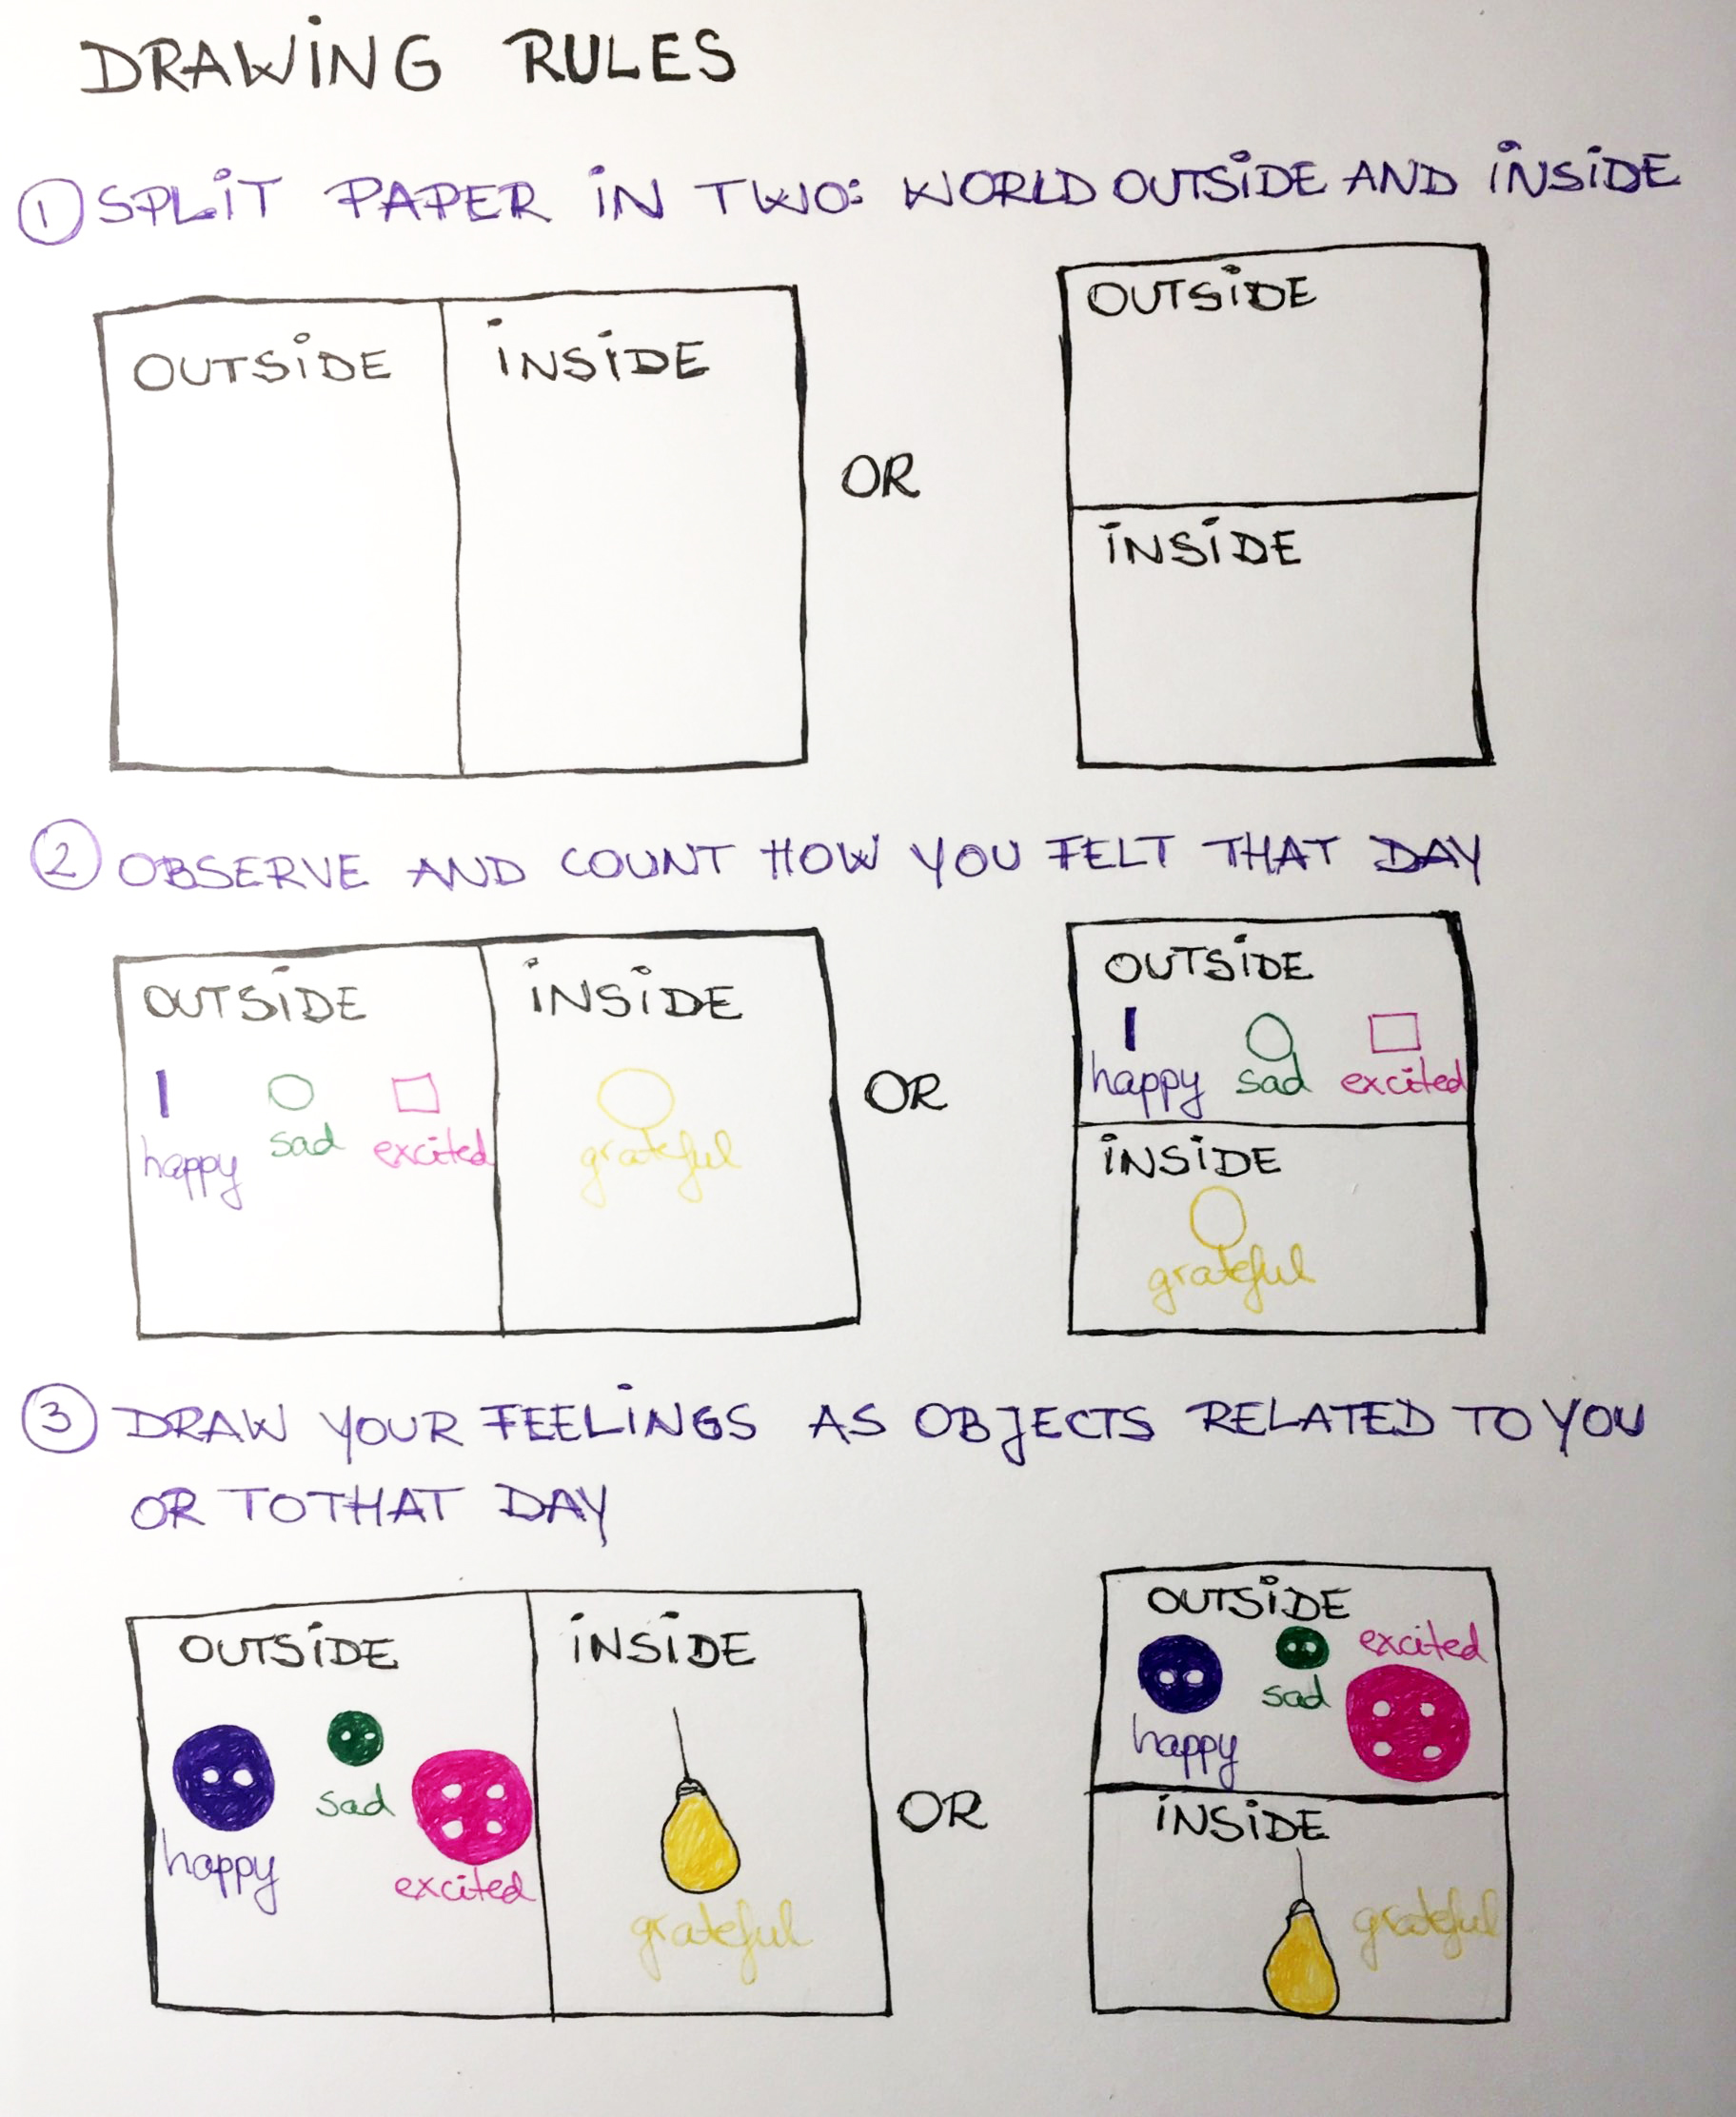 DRAWING RULES
1 SPLIT PAPER IN TWO: WORLD OUTSIDE AND INSIDE
OUTSIDE
INSIDE
OR
OUTSIDE
INSIDE
2 OBSERVE AND COUNT HOW YOU FELT THAT DAY
OUTSIDE
happy sad excited
INSIDE
grateful
OR
OUTSIDE
happy sad excited
INSIDE
grateful
3 DRAW YOUR FEELINGS AS OBJECTS RELATED TO YOU
OR TO THAT DAY
OUTSIDE
happy sad excited
INSIDE
grateful
OR
OUTSIDE
happy sad excited
INSIDE
grateful